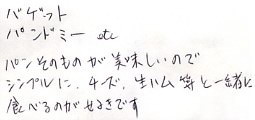 バゲット
パンドミー etc
パンそのものが美味しいので
シンプルに、チーズ、生ハム等と一緒に
食べるのがせすきです